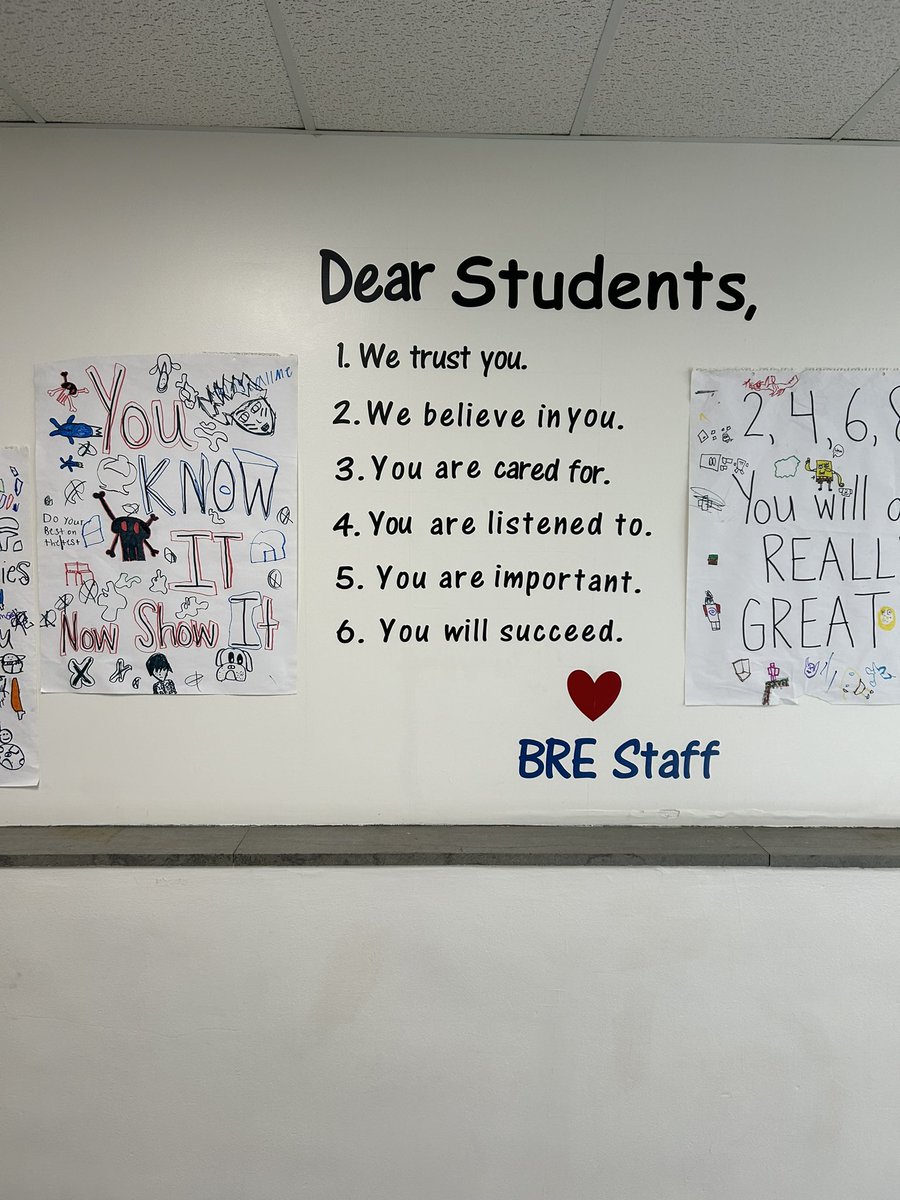 Dear Students,
1. We trust you.
2. We believe in you.
3. You are cared for.
4. You are listened to.
5. You are important.
6. You will succeed.
BRE Staff
You
KNOW
IT
Now Show It
Do Your
Best on
the test
2, 4, 6, 8
You will
REALLY
GREAT